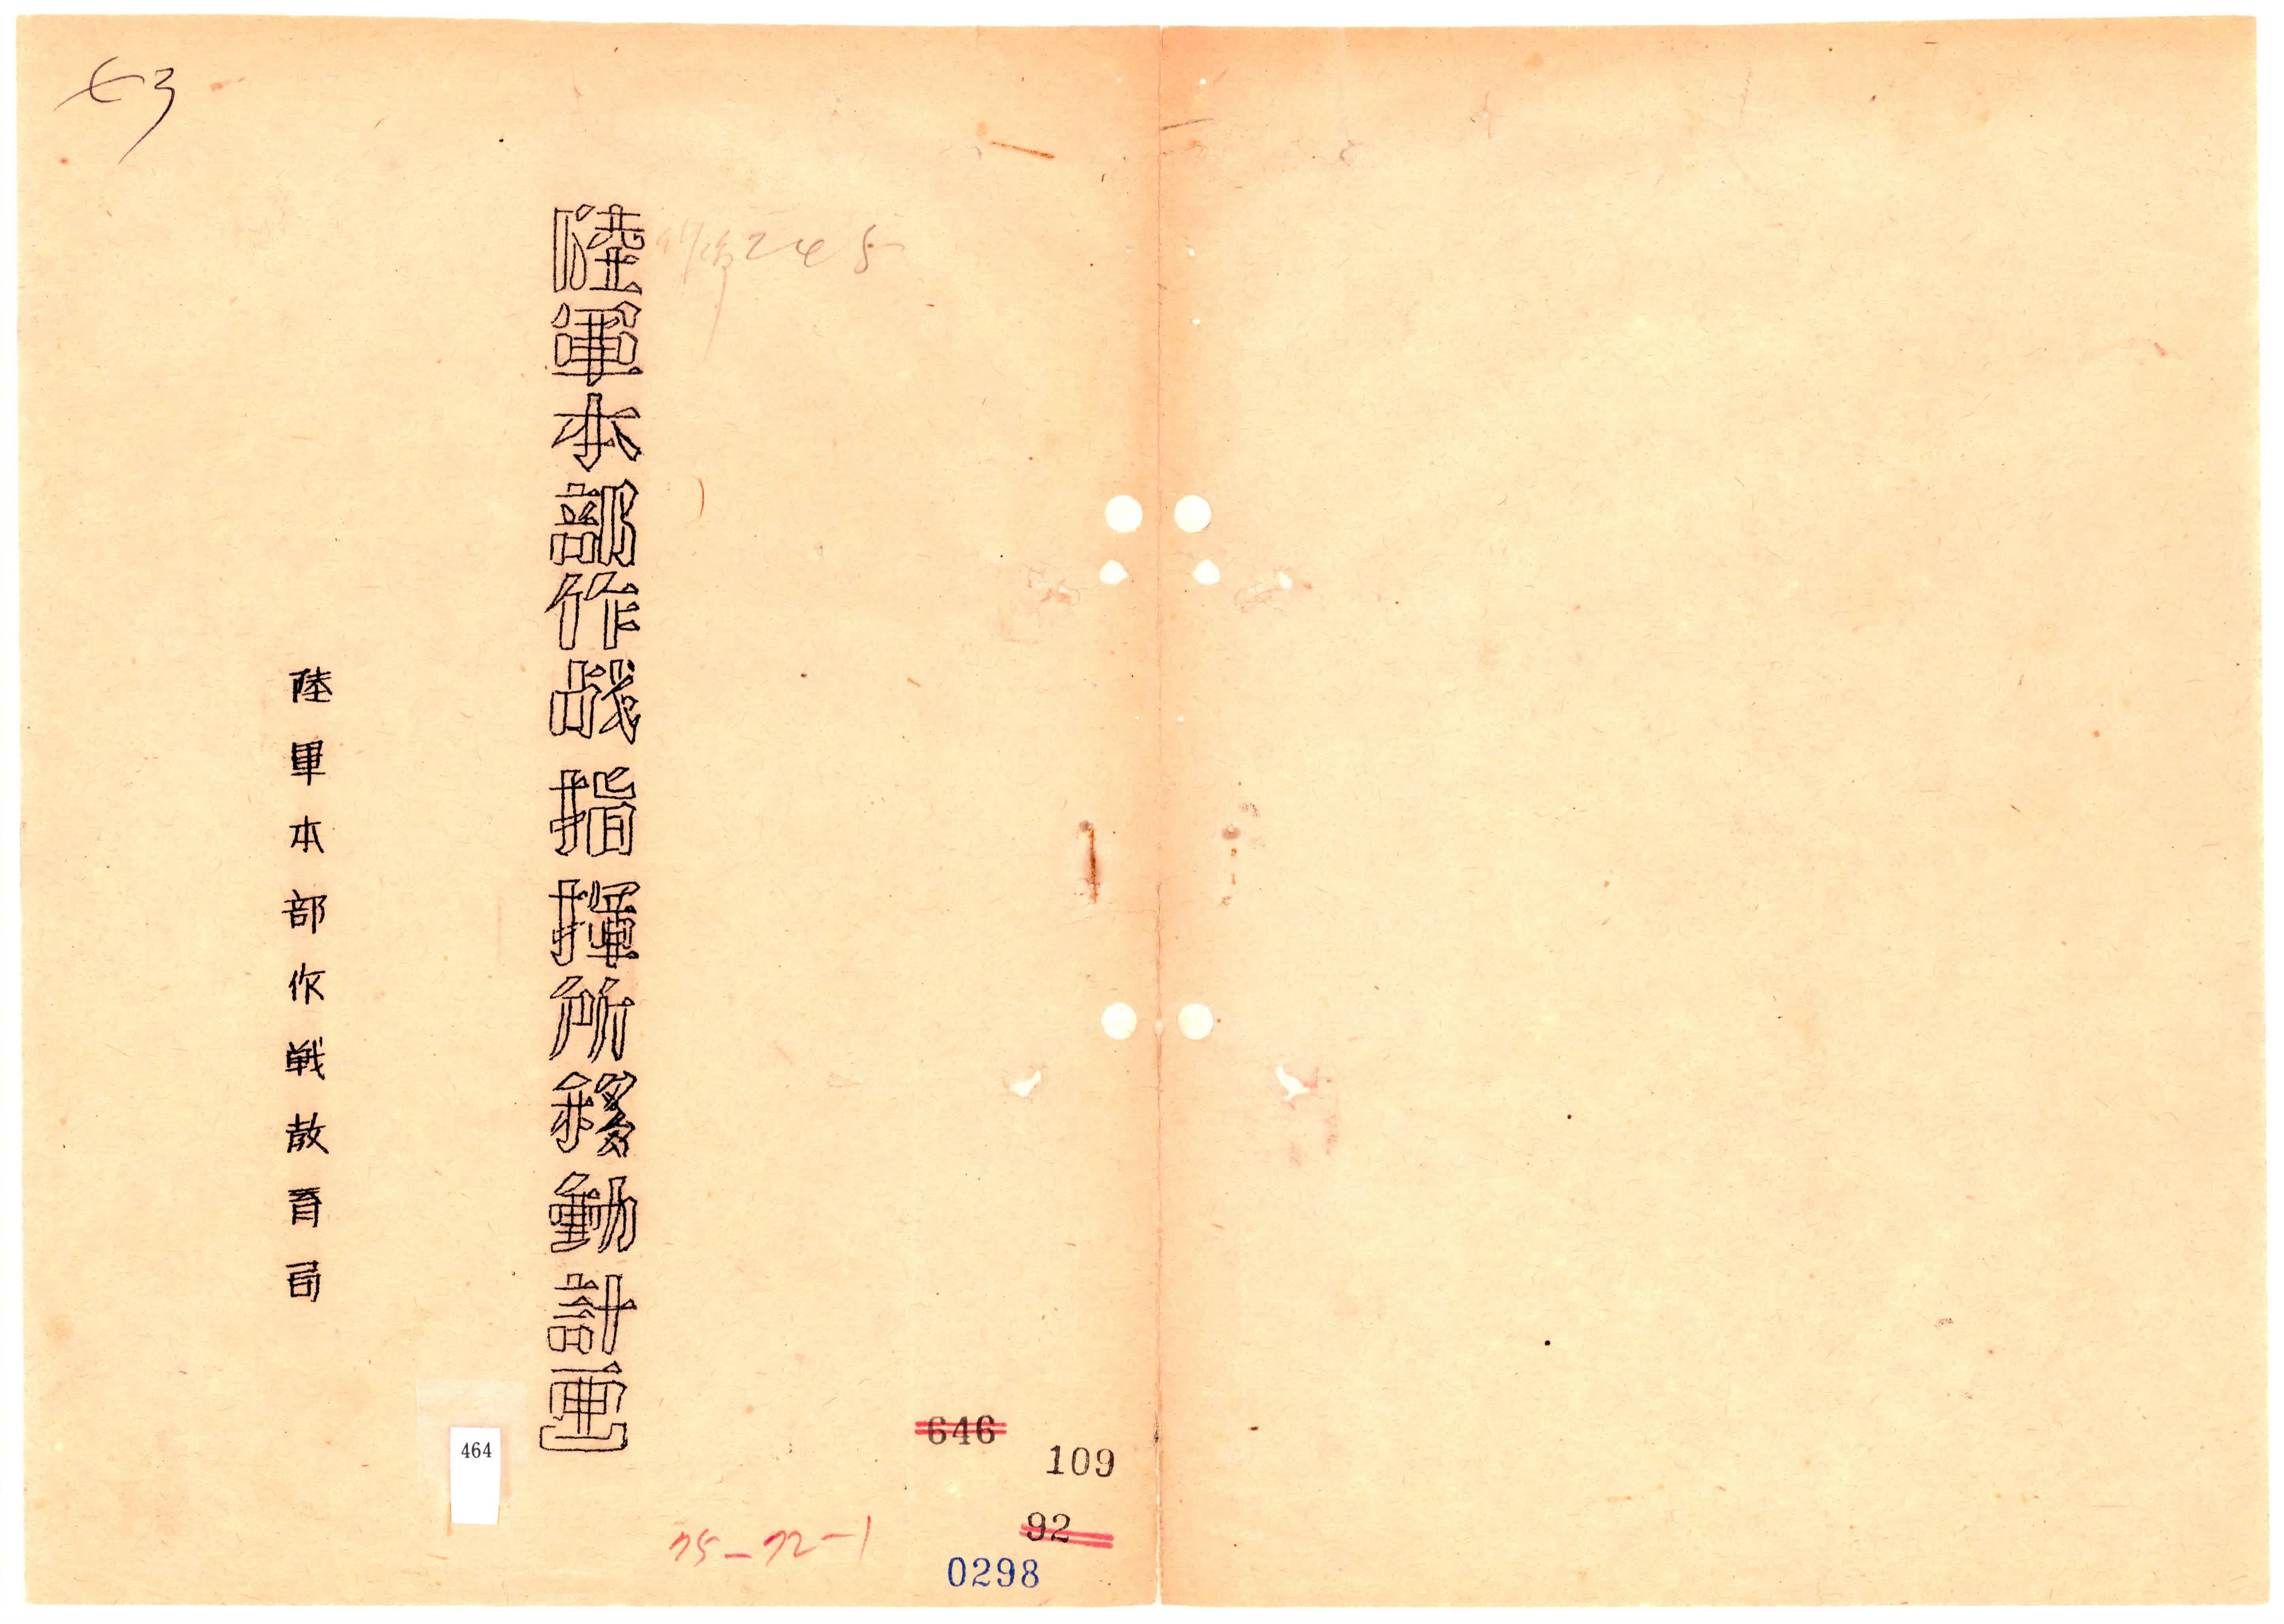 陸軍本部作战指揮所移動計画
陸軍本部作戦教育局
464
646
109
92
75-72-1
0298